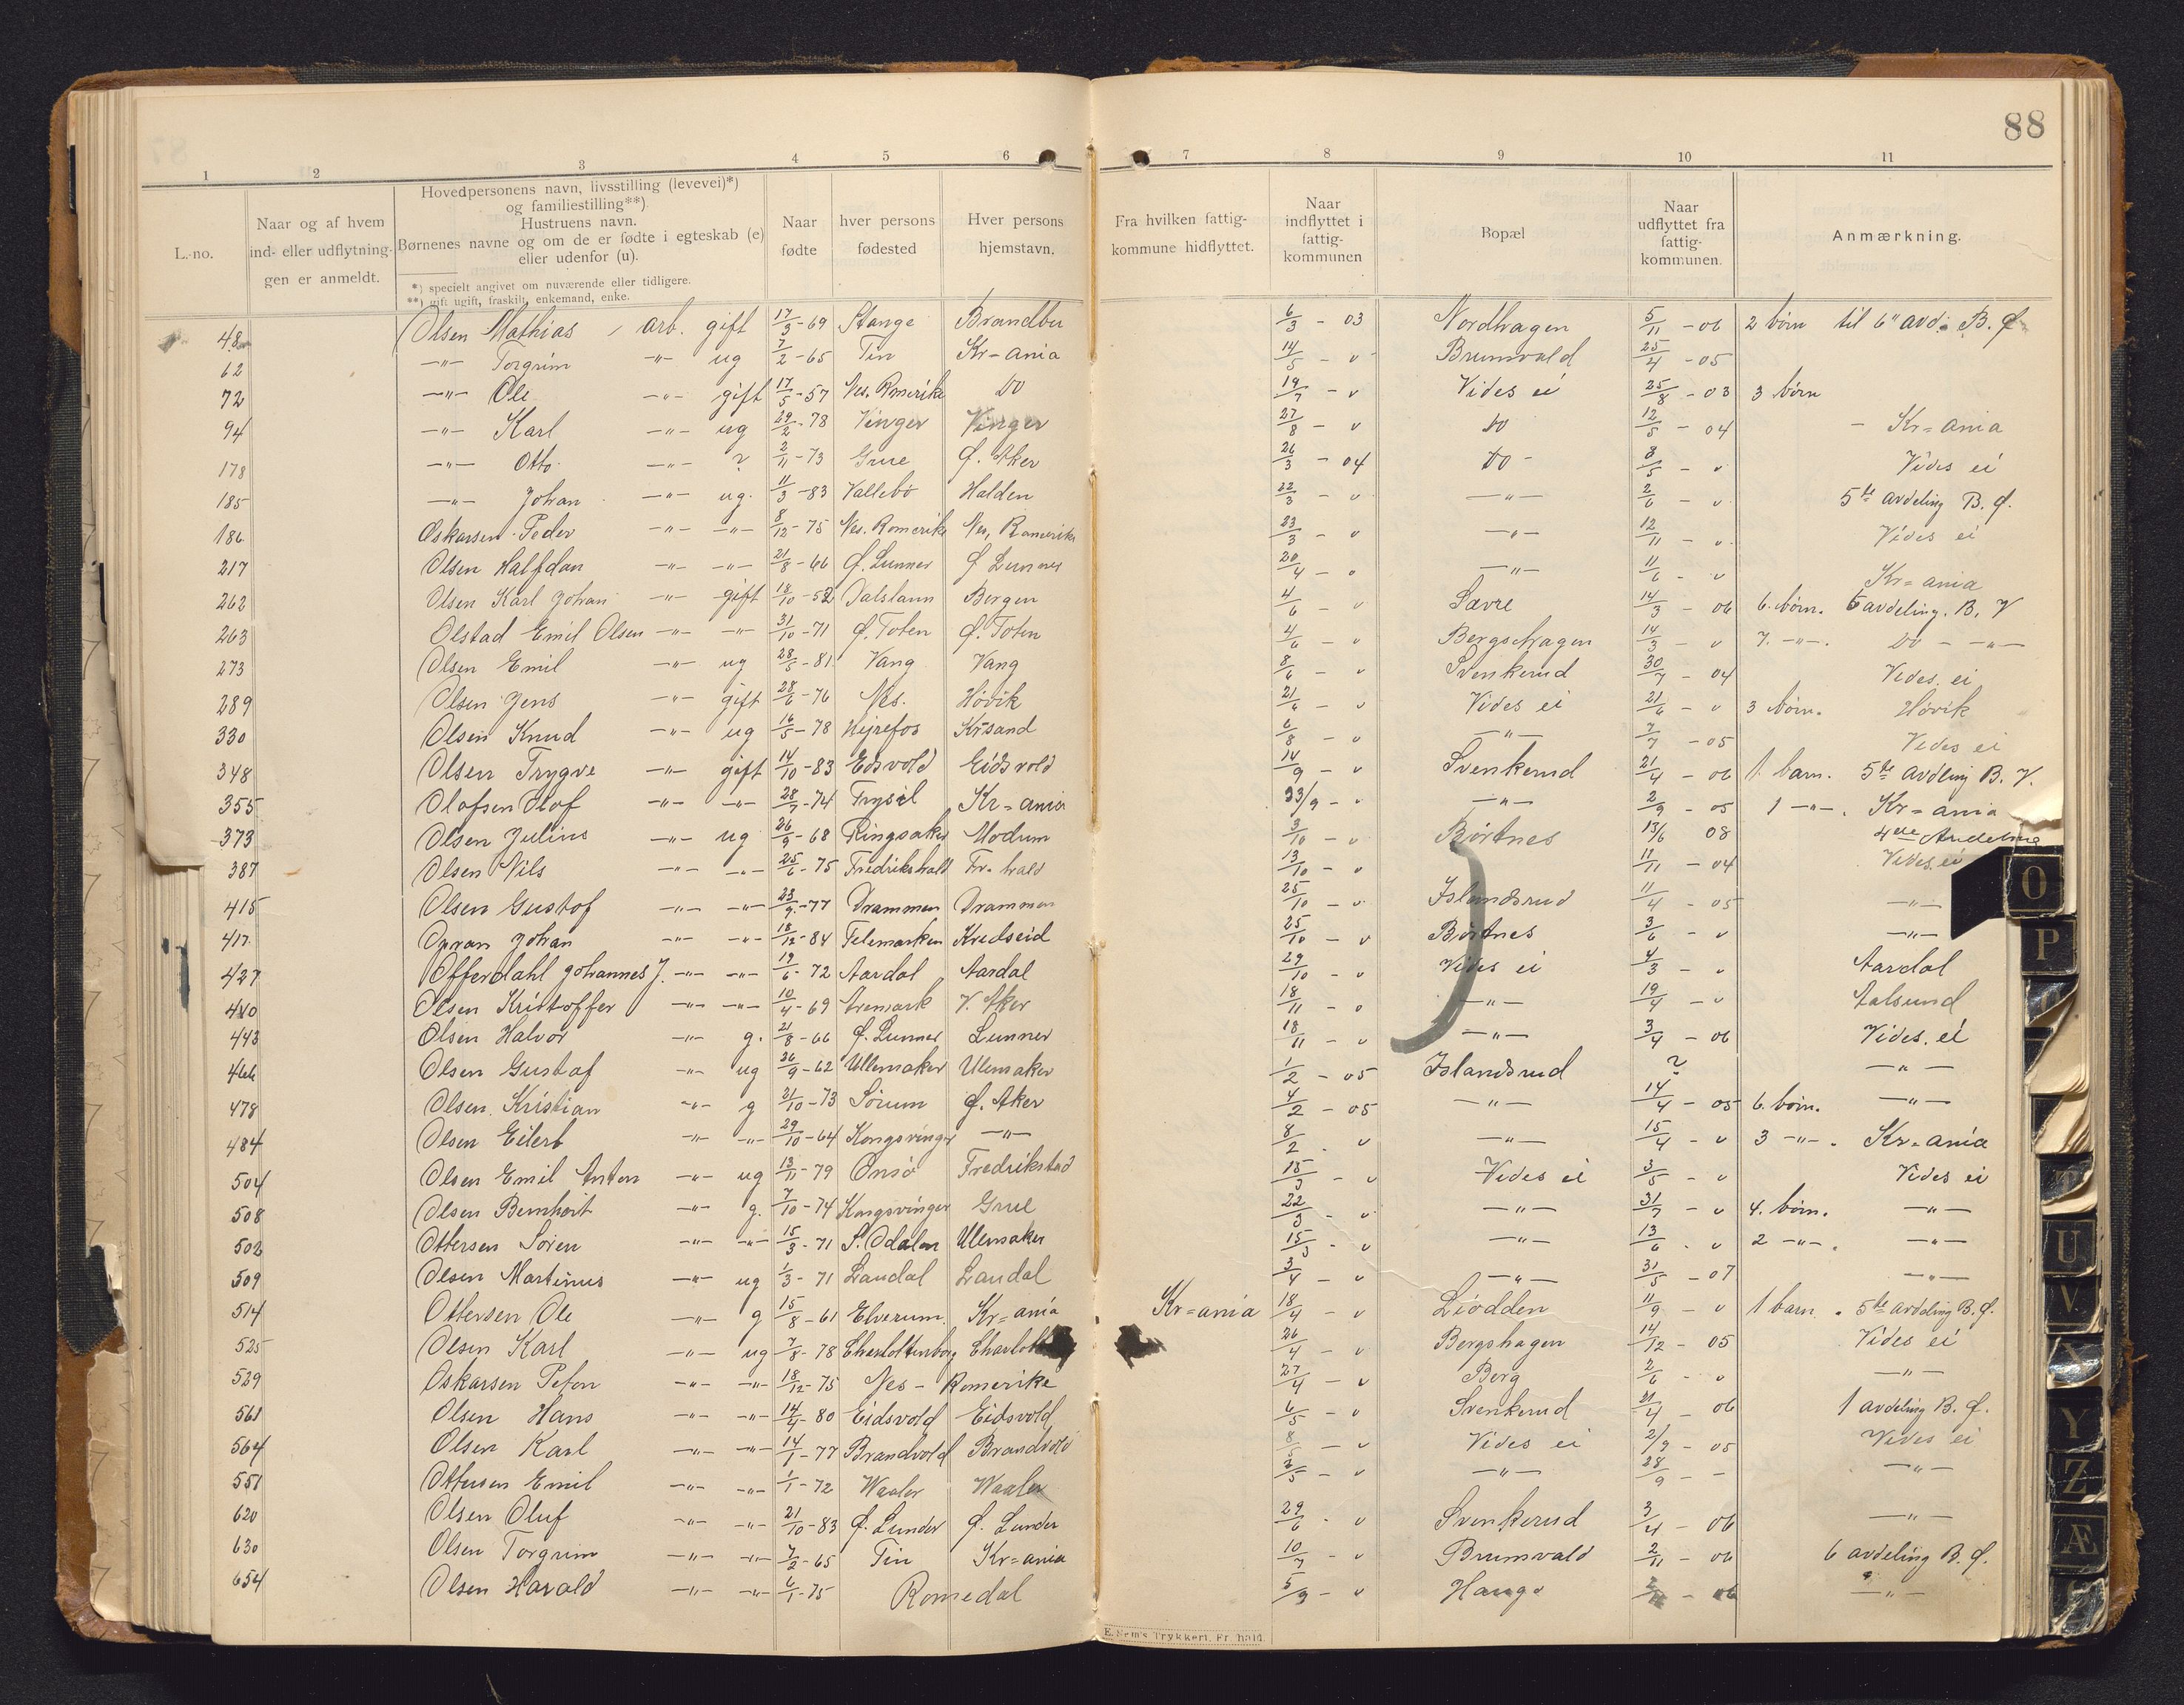 88
1 2 3 4 5 6 7 8 9 10 11
L.-no.
Naar og af hvem ind- eller udflytningen er anmeldt.
Hovedpersonens navn, livsstilling (levevei)*)
og familiestilling**)
Hustruens navn.
Børnenes navne og om de er fødte i egteskab (e)
eller udenfor (u).
*) specielt angivet om nuværende eller tidligere.
**) gift ugift, fraskilt, enkemand, enke.
Naar fødte
hver persons fødested
Hver persons hjemstavn.
Fra hvilken fattigkommune hidflyttet.
Naar indflyttet i fattigkommunen
Bopæl
Naar udflyttet fra fattigkommunen.
Anmærkning.
48 Olsen Mathias arb. gift 17/3-69 Stange Brandbu 6/3 - 03 Nordhagen 5/11 - 06 2 børn til 6" avd. B. Ø
62 -"- Torgrim -"- ug 7/2-65 Tin Kr-ania 14/5 - v Brunvald 25/4 - 05
72 -"- Ole -"- gift 17/5-57 Nes. Rmerike Do 19/7 - v Vides ei 25/8 - 03 3 børn
94 -"- Karl -"- ug 29/2-78 Vinger Vinger 27/8 - v Do 12/5 - 04 - Kr=ania
178 -"- Otto -"- ? 2/11-73 Grue Ø. Aker 26/3 - 04 Do - 8/5 - v Vides ei
185 -"- Johan -"- ug. 11/3-83 Vallebø Halden 22/3 - v -"- 2/6 - v 5te avdeling B. Ø.
186 Oskarsen Peder -"- -"- 8/12-75 Nes. Romerike Nes, Romerike 23/3 - v -"- 12/11 - v Vides ei
217 Olsen Halfdan -"- -"- 21/8-66 Ø. Lunner Ø Lunner 20/4 - v -"- 11/6 - v Kr=ania
262 Olsen Karl Johan -"- gift 18/10-52 Dalslann Bergen 4/6 - v Savre 14/3 - 06 6. børn. 5 avdeling. B. V
263 Olstad Emil Olsen -"- -"- 31/10-71 Ø. Toten Ø. Toten 4/6 - v Bergshagen 14/3 - v 7. -"- Do - -"-
273 Olsen Emil -"- ug 28/5-81 Vang Vang 8/6 - v Svenkerud 30/7 - 04 Vides. ei
289 Olsen Jens -"- gift 28/6-76 Nes. Høvik 21/6 - v Vides ei 21/6 - v 3 børn. Høvik
330 Olsen Knud -"- ug 16/5-78 Hejrefos Krsand 6/8 - v -"- 7/7 - 05 Vides ei
348 Olsen Trygve -"- gift 14/10-83 Edsvold Eidsvold 14/9 - v Svenkerud 21/4 - 06 1. barn. 5te avdling B. V.
355 Olofsen Olof -"- -"- 28/7-74 Trysil Kr=ania 23/9 - v -"- 2/9 - 05 1 -"- . Kr=ania
373 Olsen Julius -"- ug 26/9-68 Ringsaker Modum 3/10 - v Børtnes 13/6 08 4de Avdeling
387 Olsen Nils -"- -"- 25/6-75 Fredrikshald Fr. hald 13/10 - v 11/11 - 04 Vides. ei
415 Olsen Gustof -"- -"- 23/9-77 Drammen Drammen 25/10 - v Islandsrud 11/4 - 05 -"-
417 Johan -"- -"- 18/12-84 Telemarken Kredseid 25/10 - v Børtnes 3/6 - v -"-
427 Offerdahl Johannes J. -"- -"- 19/6-72 Aardal Aardal 29/10 - v Vides ei 4/3 - v Aardal
440 Olsen Kristoffer -"- -"- 10/4-69 Aremark V. Aker 18/11 - v -"- 19/4 - v Aalsund
443 Olsen Halvor -"- g. 21/8-66 Ø. Lunner Lunner 18/11 - v -"- 3/4 - 06 Vides. ei
466 Olsen Gustaf -"- ug 26/9-62 Ullensaker Ulensaker 1/2 - 05 Islandsrud ? -"-
478 Olsen. Kristian -"- g 21/10-73 Sørum Ø. Aker 4/2 - 05 -"- 14/4 - 05 6. børn. -"-
484 Olsen Eilert -"- -"- 29/10-64 Kongsvinger -"- 8/2 . v -"- 15/4 - v 3 -"- . Kr=ania
504 Olsen Emil Anton -"- ug 13/11-79 Onsø Fredrikstad 15/3 - v Vides ei 3/5 - v Vides ei
508 Olsen Bernhört -"- g. 7/10-74 Kongsvinger Grue 22/3 - v -"- 31/7 - v 4. børn. -"-
502 Ottersen Søren -"- -"- 15/3-71 S. Odalen Ulensaker 15/3 - v -"- 13/6 . v 2 -"- . -"-
509 Olsen Martinus -"- ug 1/3-71 Laudal Laudal 3/4 - v -"- 31/5 - 07 -"-
514 Ottersen Ole -"- g 15/8-61 Elverum. Kr=ania Kr=ania 18/4 - v Liodden 11/9 - v 1 barn . 5te avdeling B. Ø.
525 Olsen Karl -"- ug 7/8-78 Charlottenborg Charlott 26/4 - v Bergshagen 14/12 - 05 Vides ei
529 Oskarsen Peter -"- -"- 18/12-75 Nes - Romerike 27/4 - v Berg 2/6 - v -"-
561 Olsen Hans -"- -"- 14/4-80 Eidsvold Eidsvold 6/5 - v Svenkerud 21/4 - 06 1 avdeling B. Ø.
564 Olsen Karl -"- -"- 14/1-77 Brandvold Brandvold 8/5 - v Vides ei 2/9 - 05 Vides ei
551 Ottersen Emil -"- -"- 1/1-72 Waaler Waaler 2/5 - v -"- 28/9 - - -"-
620 Olsen Oluf -"- -"- 21/10-83 Ø. Lunder Ø. Lunder 29/6 . v Svenkerud 3/4 - 06 -"-
630 Olsen Torgrim -"- -"- 7/2-65 Tin Kr=ania 10/7 - v Brunsvald 2/11 - 06 6 avdeling B. Ø.
654 Olsen Harald -"- -"- 6/1-75 Romedal 5/9 - v Hauge 06 -"-
E. Nem's Trykkeri, Fr.hald.
O
P
U
V
X
Y
Z
Æ